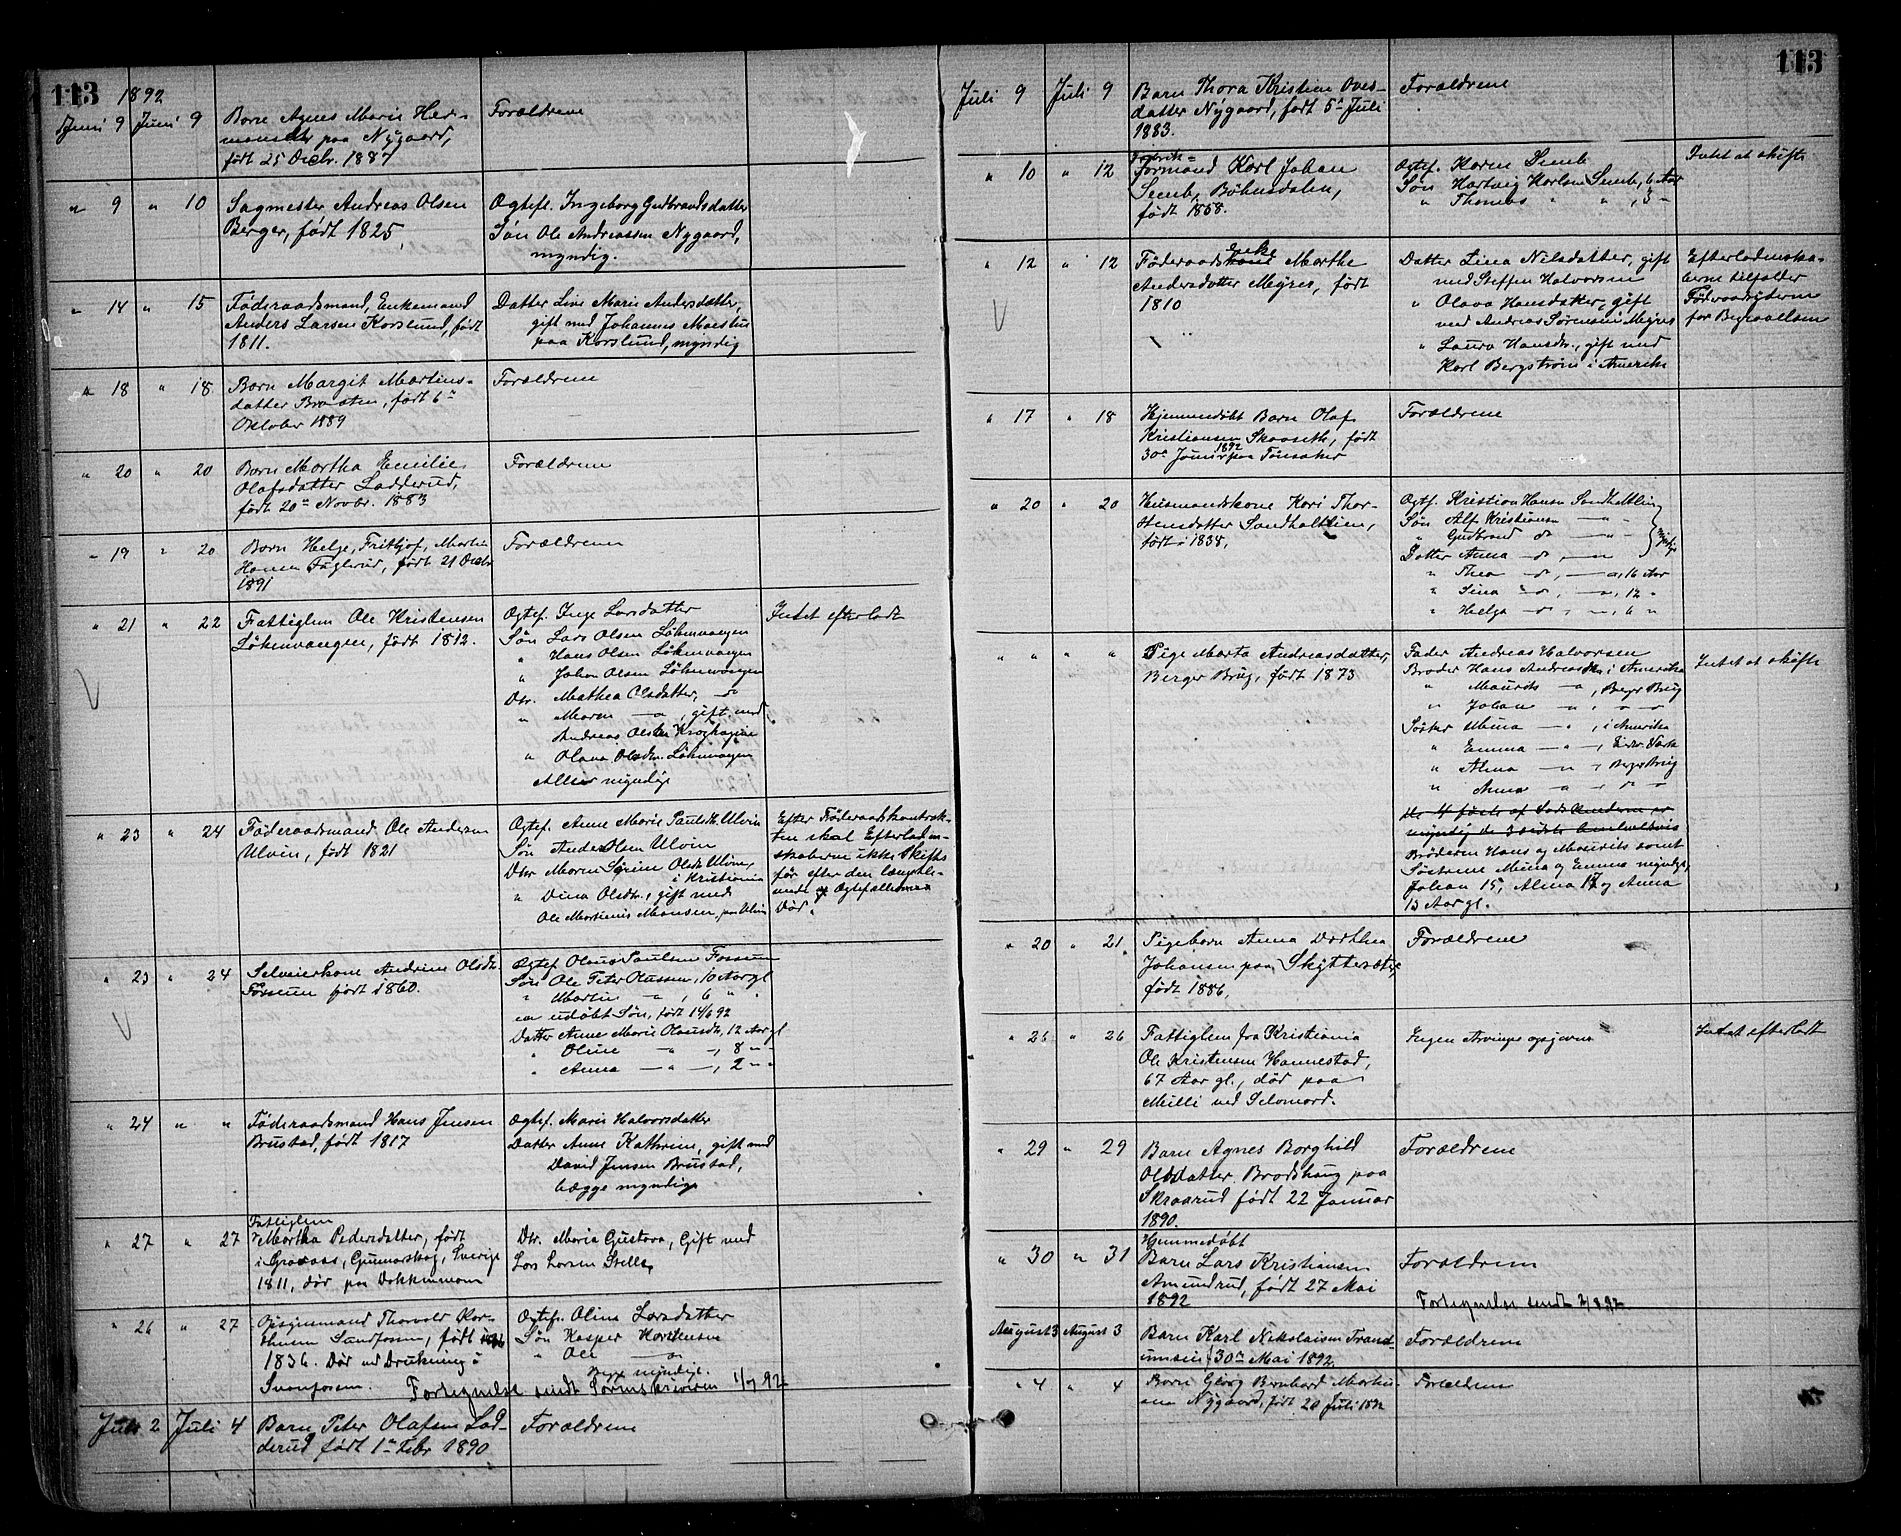 113
1892
Juni 9 Juni 9 Barn Agnes Marie Her-
mansdtr paa Nygaard,
født 25 Decbr. 1887
Forældrene
" 9 " 10 Sagmester Andreas Olsen
Berger, født 1825,
Ogtefl. Ingeborg Gudbrandsdatter
Søn Ole Andreassen Nygaard,
myndig.
" 14 " 15 Føderaadsmand, Enkemand
Anders Larsen Korslund, født
1811.
Datter Line Marie Andersdatter,
gift med Johannes
paa Korslund, myndig
" 18 " 18. Barn Margit Martins-
datter Braaten, født 6te
Oktober 1889
Forældrene
" 20 " 20 Barn Martha Emilie
Olafsdatter Ladderud,
født 20de Novbr. 1883
Forældrene
" 19 " 20 Barn Helge, Frithjof, Martin
Hansen Fuglerud, født 21 Decbr
1891
Forældrene
" 21 " 22 Fattiglem Ole Kristensen
Løkenvangen, født 1812.
Ogtef. Inge Larsdatter
Søn Lars Olsen Løkenvangen
" Hans Olsen Løkenvangen
" Johan Olsen Løkenvangen
Dtr. Mathea Olsdatter, -do
" Maren —"—, gift med
Andreas Olsen Kroghagen
" Olava Olsdtr. Løkenvangen
Alle myndige
Intet efterladt
" 23 " 24 Føderaadsmand Ole Andersen
Ulvin, født 1821
Ogtef. Anne Marie Paulsdtr. Ulvin
Søn Anders Olsen Ulvin
Dtr Maren Sørine Olsdtr. Ulvin,
i Kristiania
" Dina Olsdtr., gift med
Ole Martinius Monsen, paa Ulvin
Efter Føderaadskontrak-
ten skal Efterladen-
skaberne ikke skiftes
før efter den længstle-
vende af Ogtefællernes
Død.
" 23 " 24 Selveierkone Andrine Olsdtr.
Fossum født 1860.
Ogtef. Olaus Paulsen Fossum
Søn Ole Peter Olaussen, 10 Aar gl
" Martin —"—, 6 " "
en udøbt Søn, født 14/6 92
Datter Anne Marie Olausdtr, 12 Aar gl
" Oline —"—, 8 " "
" Anna —"—, 2 " "
" 24 " " Føderaadsmand Hans Jensen
Brustad, født 1817
Ogtef. Marie Halvorsdatter
Datter Anne Kathrine, gift med
David Jensen Brustad,
begge myndige
" 27 " 27 Fattiglem
Martha Pedersdatter, født
i Graaaas, Gunnarskog, Sverige
1811, dør paa Dokkenmoen
Dtr. Maria Gustava, Gift med
Lars Larsen
" 26 " 27 Opsynsmand Thorvald Kar-
stensen Sandfossen, født
1836. Død ved Drukning i
Svanfossen.
Ogtef. Oline Larsdatter
Søn Kasper Karstensen
" Ole —"—
Begge myndige.
Fortegnelse sendt Sorenskriveren 1/7 92
Juli 2 Juli 4 Barn Peter Olafsen Lad-
derud født 1ste Febr 1890
Forældrene
113
Juli 9 Juli 9 Barn Thora Kristine Oves-
datter Nygaard, født 5te Juli
1883.
Forældrene
" 10 " 12 Fabrik=
Formand Karl Johan
Semb, Bøhnsdalen,
født 1858.
Ogtef. Karen Semb
Søn Hartvig Karlsen Semb, 6 Aar
" Thomas " " , 3 "
Intet at skifte
" 12 " 12 Føderaadsenke Marthe
Andersdatter Myrer, født
1810
Datter Lina Nilsdatter, gift
med Steffen Halvorsen
" Olava Hansdatter, gift
med Andreas Sørensen Myrer
" Laura Hansdtr., gift med
Karl Bergstrøm i Amerika
Efterladenska-
berne tilfalder
Føderaadsyderne
for Begravelsen
" 17 " 18 Hjemmedøbt Barn Olaf
Kristiansen Skaaseth, født
30te Juni 1892 paa Tønsaker
Forældrene
" 20 " 20 Husmandskone Kari Thor-
stensdatter Sandholtlien,
født i 1838,
Ogtf. Kristian Hansen Sandholtlien
Søn Alf Kristiansen —"—
" Gudbrand do —"—
Datter Anna —do, —"—
myndige
" Thea —do, —"—, 16 Aar
" Lina —do, —"—, 12 "
" Helga —do " —, 6 "
" " " " Pige Marta Andreasdatter,
Berger Brug, født 1873
Fader Andreas Halvorsen
Broder Hans Andreassen i Amerika
" Mauritz —"—, Berger Brug
" Johan — " — " —
Søster Mina —"—, i Amerika
" Emma —"—,
" Alma —"—, Berger Brug
" Anna — " — " —
De 4 første af Søskenderne er
myndig de 3 sidste
Brødrene Hans og Mauritz samt
Søstrene Mina og Emma myndige,
Johan 15, Alma 17 og Anna
13 Aar gl.
Intet at skifte
" 20 " 21 Pigebarn Anna Dorthea
Johansen paa Skyttersæter
født 1886,
Forældrene
" 26 " 26 Fattiglem fra Kristiania
Ole Kristensen Hannestad,
67 Aar gl., død paa
Melli ved Selomord.
Ingen Arvinger opgivne
Intet efterladt
" 29 " 29 Barn Agnes Borghild
Olsdatter Brodshaug paa
Skraarud født 22 Januar
1890.
Forældrene
" 30 " 31 Hjemmedøbt
Barn Lars Kristiansen
Amundrud, født 27 Mai
1892
Forældrene
Fortegnelse sendt 2/8 92
August 3 August 3 Barn Karl Nikolaisen Trand-
umseie, f 30te Mai 1892
Forældrene
" 4 " 4 Barn Georg Bernhard Martin-
sen Nygaard, født 20 Juli 1892
Forældrene